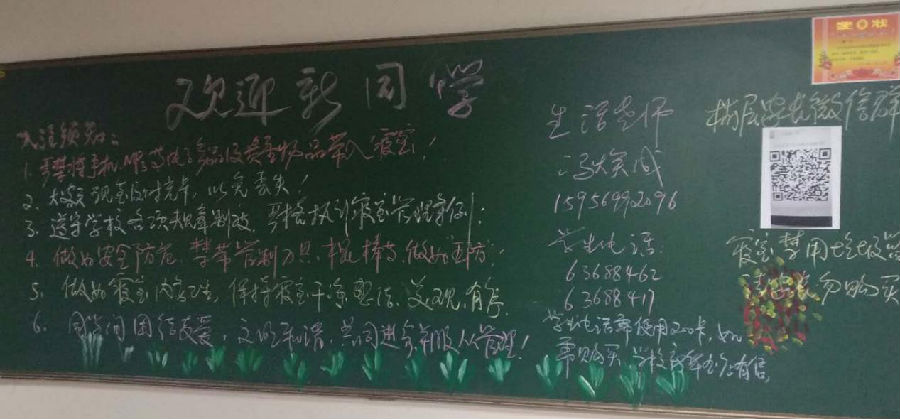 欢迎新同学
入住须知:
1. 严禁携手机、MP3等电子产品及贵重物品带入寝室!
2. 大额现金及时充卡,以免丢失!
3. 遵守学校各项规章制度,严格执行寝室管理条例;
4. 做好安全防范,禁带管制刀具、棍棒等,做好三防;
5. 做好寝室内卫生,保持寝室干净整洁,美观,有序
6. 同学间团结友爱,文明和谐,共同进步并服从管理!
生活老师
冯大实成
15956992096
学生电话:
63688462
63688417
学生电话要使用200卡,如
需购买,学校
有售
楼层家长微信群
寝室禁用垃圾
请家长勿购买
奖状